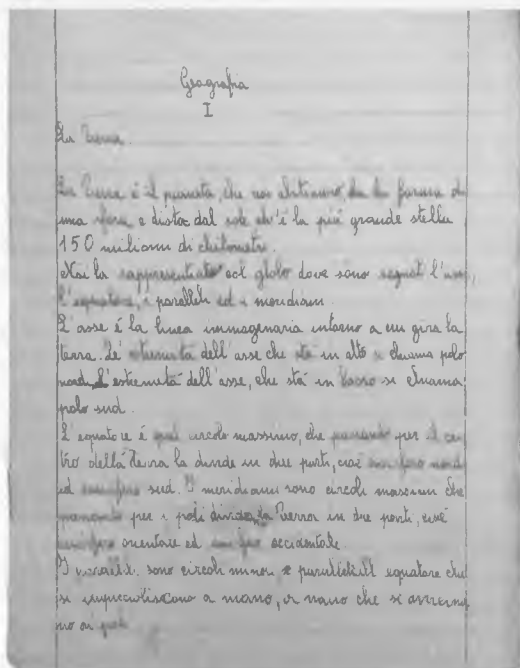 Geografia
I
La Terra.
La Terra è il pianeta, che noi abitiamo, ha la forma di
una sfera, e dista dal sole ch'è la più grande stella
150 milioni di chilometri.
Noi la col globo dove sono segnati l'asse,
l'equatore, i paralleli ed i meridiani.
L'asse è la linea immaginaria intorno a cui gira la
terra. Le' estremità dell'asse che sta in alto si chiama polo
nord L'estremità dell'asse, che stà in basso si chiama
polo sud.
L'equatore é quel circolo massimo, che passando per il cen
tro della terra la divide in due parti, cioè emisfero nord
ed emisfero sud. I meridiani sono circoli massimi che
passando per i poli la Terra in due parti, cioè
emisfero orientale ed emisfero occidentale.
I sono circoli minori equatore che
si a mano, a mano che si avvicina
no ai poli